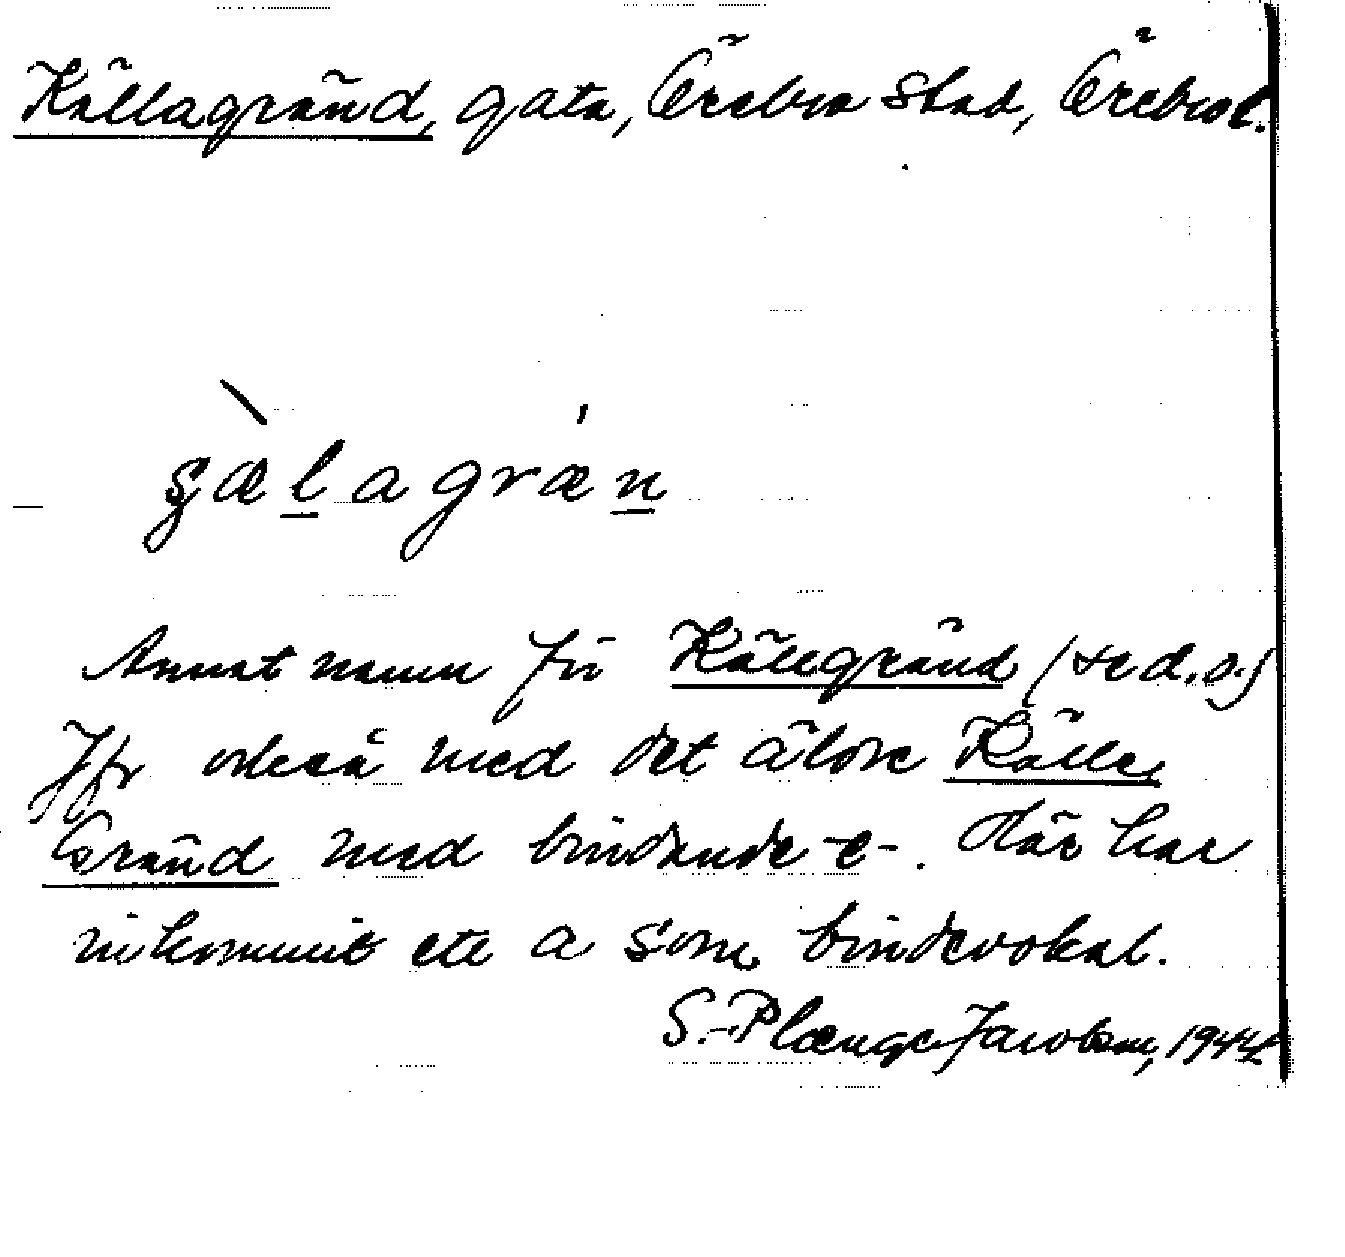 Källagränd, gata, Örebro stad, Örebro l.
ʂæ̀lagræ´n
Annat namn för Källegränd (se d.o.)
Jfr också med det äldre Källe
Gränd med bindande -e-. Här har
inkommit ett a som bindevokal.
S. Plænge Jacobson, 1944